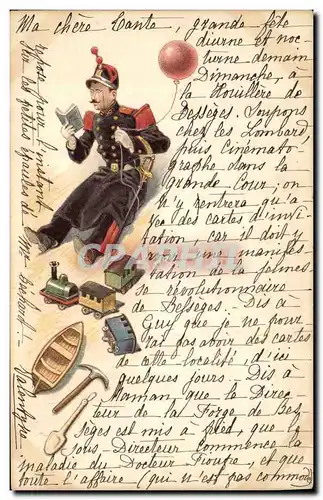 Ma chère Tante, grande fête
diurne et noc
turne demain
Dimanche, à
la Houillère de
Bessèges. Soupons
chez les Lombard,
puis Cinémato
graphe dans la
grande Cour; on
n'y rentrera qu'a
vec des cartes d'invi
tation, car il doit y
avoir une manifes
tation de la jeunes
se révolutionnaire
de Bessèges. Dis à
Guy que je ne pour
rai pas avoir des cartes
de cette localité, d'ici
quelques jours. Dis à
Maman que le Direc
teur de la Forge de Bes
sèges est mis à pied, que le
Sous-Directeur commence la
maladie du Docteur et que
toute l'affaire (qui n'est pas commod
repose pour l'instant
sur les petites épaules de Mr